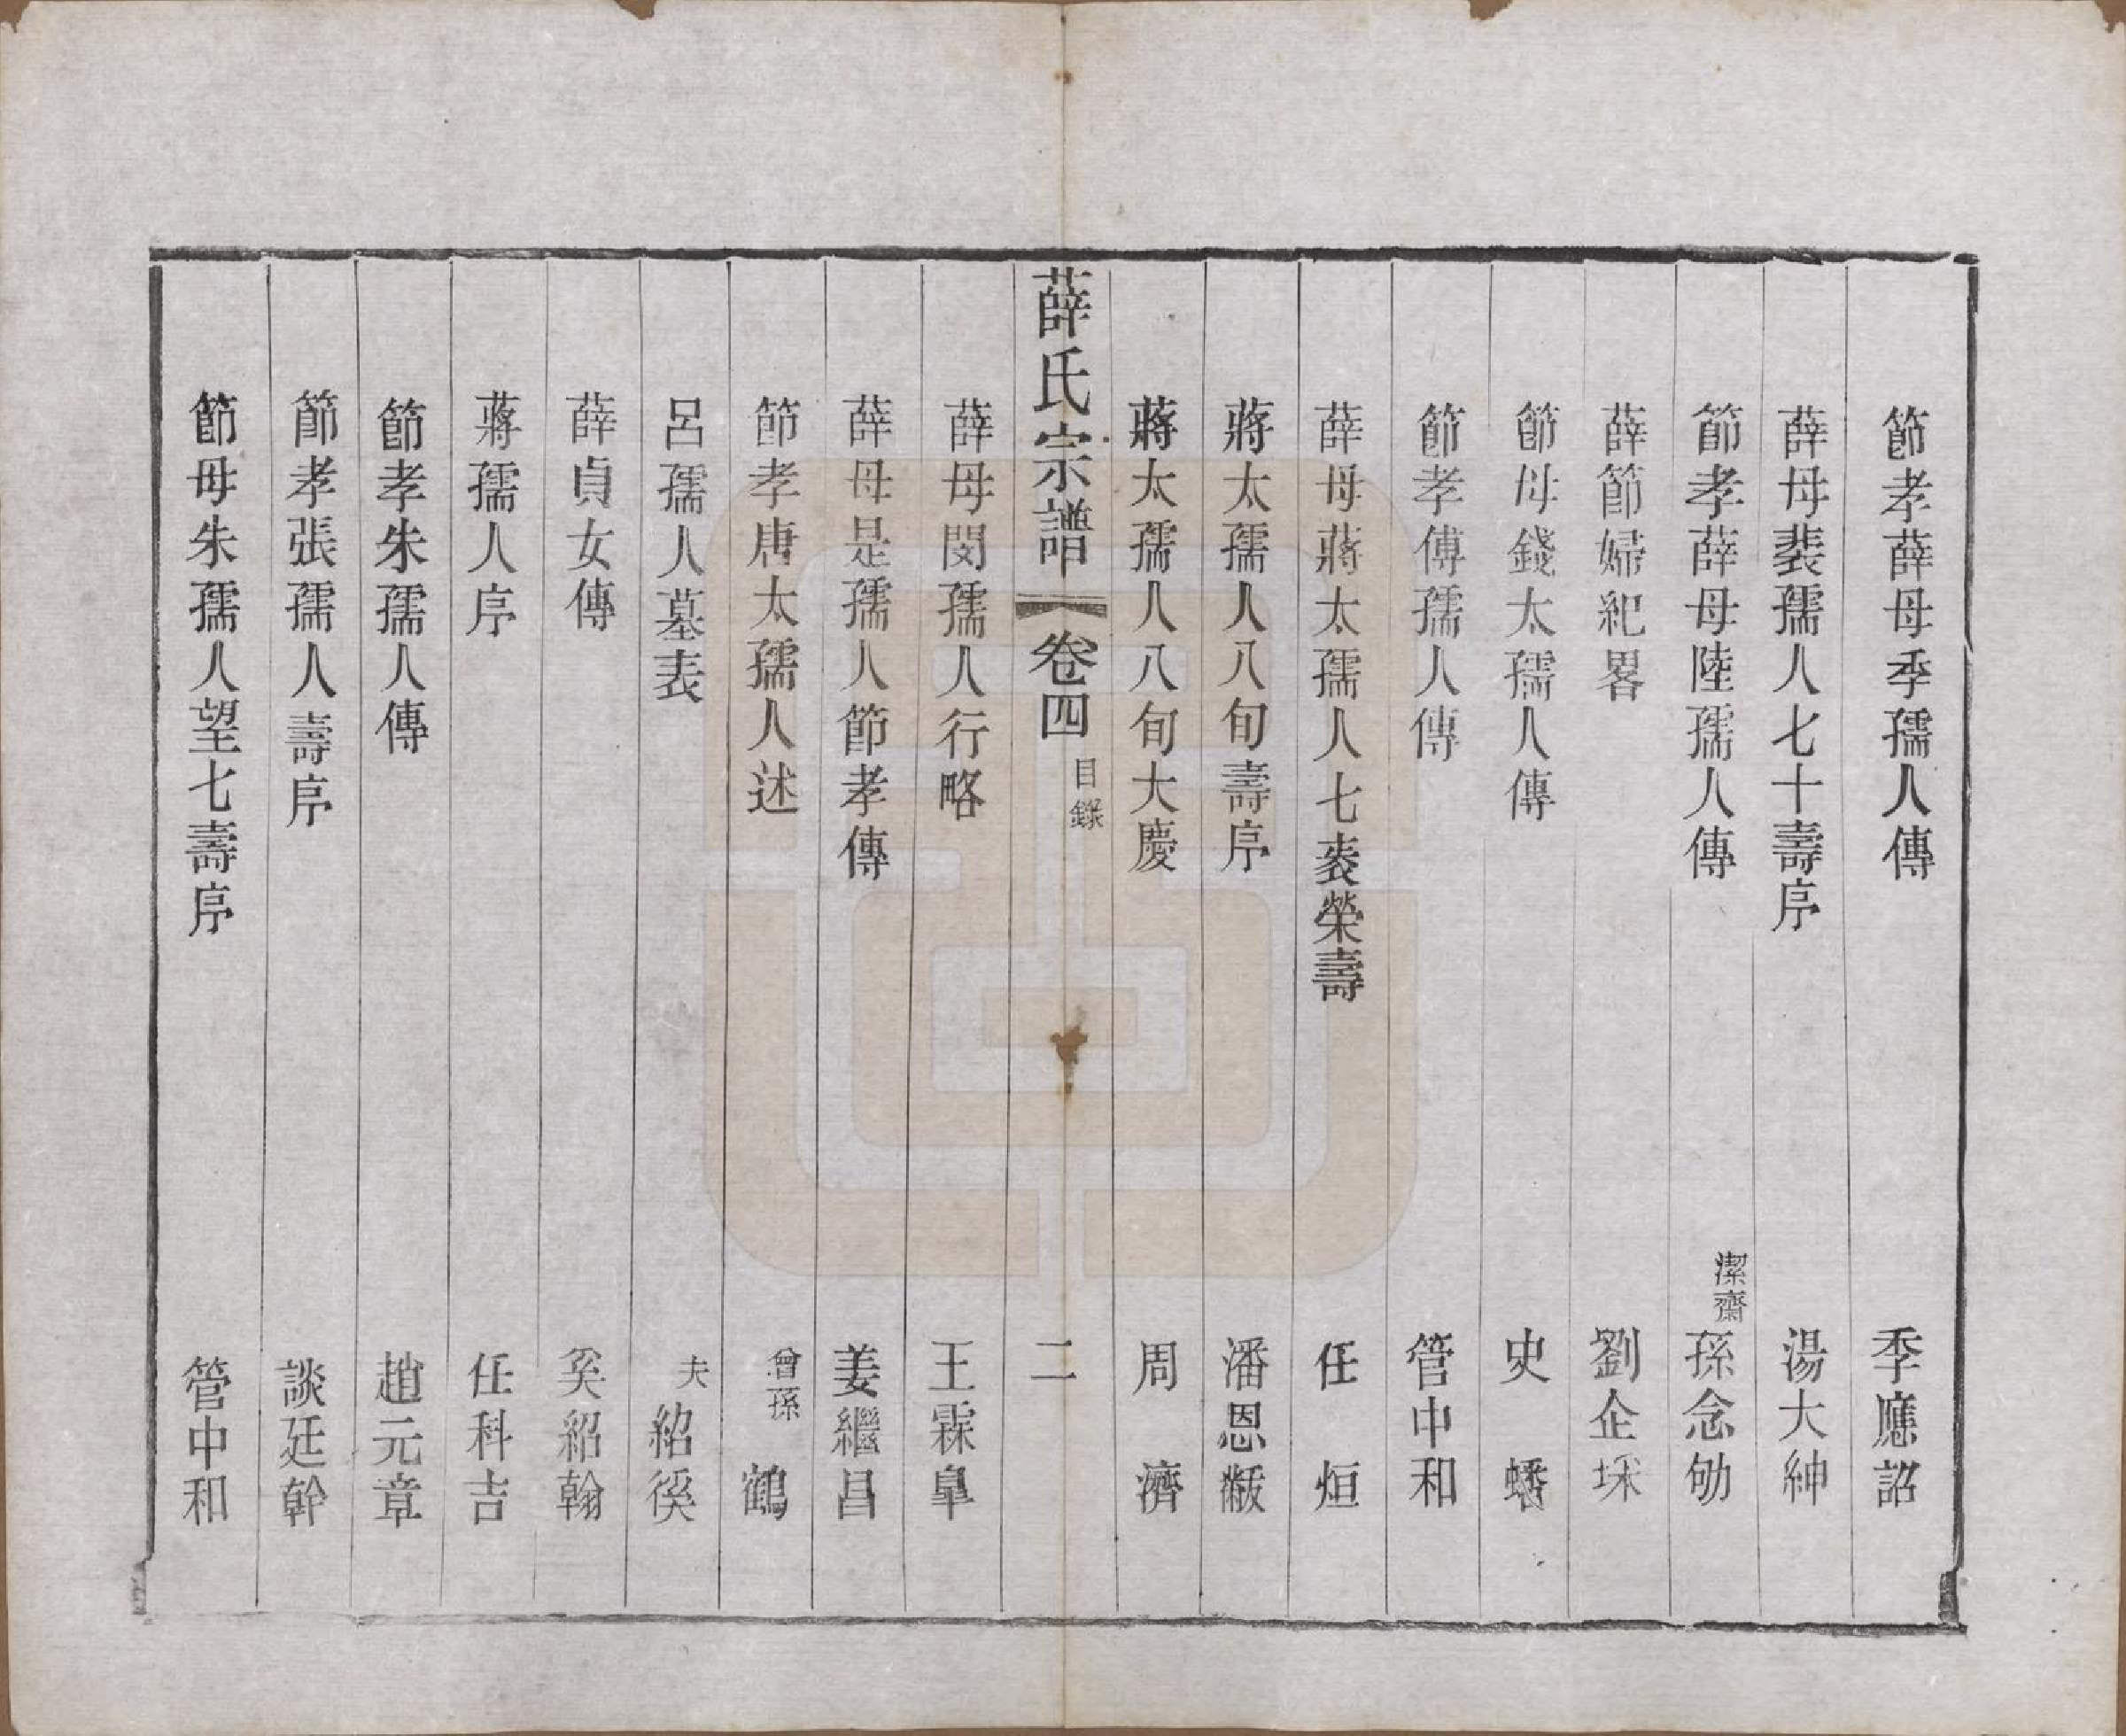 節孝薛母季孺人傳 季應詔
薛母裴孺人七十壽序 湯大紳
節孝薛母陸孺人傳 潔齋孫念劬
薛節婦紀畧 劉企埰
節母錢太孺人傳 史 蟠
節孝傅孺人傳 管中和
薛母蔣太孺人七袠榮壽 任 烜
蔣太孺人八旬壽序 潘恩黻
蔣太孺人八旬大慶 周 濟
薛氏宗譜 卷四 目錄 二
薛母閔孺人行略 王霖皐
薛母是孺人節孝傳 姜繼昌
節孝唐太孺人述 曾孫 鶴
呂孺人墓表 夫 紹徯
薛貞女傳 奚紹翰
蔣孺人序 任科吉
節孝朱孺人傳 趙元章
節孝張孺人壽序 談廷幹
節母朱孺人望七壽序 管中和